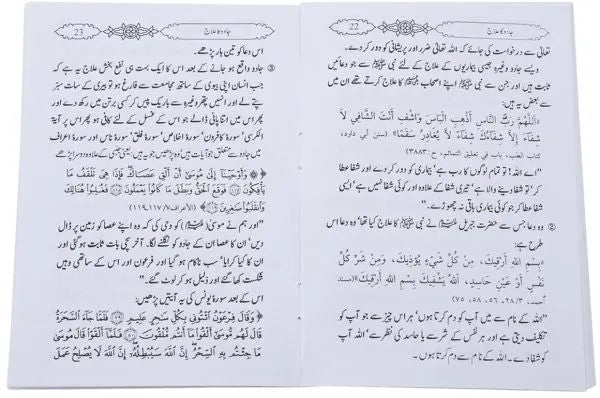 جادو کا علاج
22
تعالیٰ سے درخواست کی جائے کہ اللہ تعالیٰ ضرر اور پریشانی کو دور کر دے۔
ویسے جادو وغیرہ جیسی بیماریوں کے علاج کے لئے نبی ﷺ سے جو دعائیں
ثابت ہیں اور جن سے نبی ﷺ اپنے اصحاب کا علاج کرتے تھے ان میں
سے بعض یہ ہیں:
«اَللّٰهُمَّ رَبَّ النَّاسِ أَذْهِبِ الْبَاسَ وَاشْفِ أَنْتَ الشَّافِي لاَ
شِفَاءَ إِلاَّ شِفَاؤُكَ شِفَاءً لاَ يُغَادِرُ سَقَمًا» (سنن أبي داود،
كتاب الطب، باب في تعليق التمائم، ح: ٣٨٨٣)
”اے اللہ! تو تمام لوگوں کا رب ہے‘ بیماری کو دور کر دے اور شفا عطا
کر‘ تو شفا دینے والا ہے‘ تیری شفا کے علاوہ اور کوئی شفا نہیں ہے‘ ایسی
شفا عطا کر جو کوئی بیماری باقی نہ چھوڑے۔“
② وہ دعا جس سے حضرت جبریل نے نبی ﷺ کا علاج کیا تھا‘ وہ دعا اس
طرح ہے:
«بِسْمِ اللهِ أَرْقِيكَ، مِنْ كُلِّ شَيْءٍ يُؤْذِيكَ، وَمِنْ شَرِّ كُلِّ
نَفْسٍ أَوْ عَيْنِ حَاسِدٍ، اَللهُ يَشْفِيكَ بِسْمِ اللهِ أَرْقِيكَ» (مسند
أحمد، ٢٨/٣، ٥٦، ٥٨، ٧٥)
”اللہ کے نام سے میں آپ کو دم کرتا ہوں‘ ہر اس چیز سے جو آپ کو
تکلیف دیتی ہے اور ہر نفس کے شر سے یا حاسد کی نظر سے‘ اللہ آپ
کو شفا دے۔ اللہ کے نام سے دم کرتا ہوں۔“
جادو کا علاج
23
اس دعا کو تین بار پڑھے۔
③ جادو واقع ہو جانے کے بعد اس کا ایک بہت ہی نفع بخش علاج یہ ہے کہ
جب انسان اپنی بیوی کے ساتھ مجامعت سے فارغ ہو تو بیری کے سات سبز
پتے لے اور انہیں پتھر وغیرہ سے باریک پیس کر کسی برتن میں رکھ دے اور
پھر اس میں اتنا پانی ڈالے جو اس کے غسل کے لئے کافی ہو پھر اس پر آیۃ
الکرسی‘ سورۂ کافرون‘ سورۂ اخلاص‘ سورۂ فلق‘ سورۂ ناس اور سورۂ اعراف
میں جادو سے متعلق جو آیات ہیں وہ پڑھیں جو یہ ہیں:
﴿وَأَوْحَيْنَا إِلَى مُوسَى أَنْ أَلْقِ عَصَاكَ فَإِذَا هِيَ تَلْقَفُ مَا
يَأْفِكُونَ ۝ فَوَقَعَ الْحَقُّ وَبَطَلَ مَا كَانُوا يَعْمَلُونَ ۝ فَغُلِبُوا هُنَالِكَ
وَانْقَلَبُوا صَاغِرِينَ﴾ (الأعراف ٧/ ١١٧-١١٩)
”اور ہم نے موسیٰ کو وحی کی کہ وہ اپنے عصا کو زمین پر ڈال
دیں‘ ان کا عصا ان کے جادو کو نگلنے لگا۔ آخر سچی بات ثابت ہو گئی اور
ان کا کیا کرایا‘ سب ناکام ہو گیا اور فرعون اور اس کے ساتھی وہیں
شکست کھا گئے اور ذلیل ہو کر لوٹ گئے۔“
اس کے بعد سورۂ یونس کی یہ آیتیں پڑھیں:
﴿وَقَالَ فِرْعَوْنُ ائْتُونِي بِكُلِّ سَاحِرٍ عَلِيمٍ ۝ فَلَمَّا جَاءَ السَّحَرَةُ
قَالَ لَهُمْ مُوسَى أَلْقُوا مَا أَنْتُمْ مُلْقُونَ ۝ فَلَمَّا أَلْقَوْا قَالَ مُوسَى
مَا جِئْتُمْ بِهِ السِّحْرُ إِنَّ اللهَ سَيُبْطِلُهُ إِنَّ اللهَ لَا يُصْلِحُ عَمَلَ